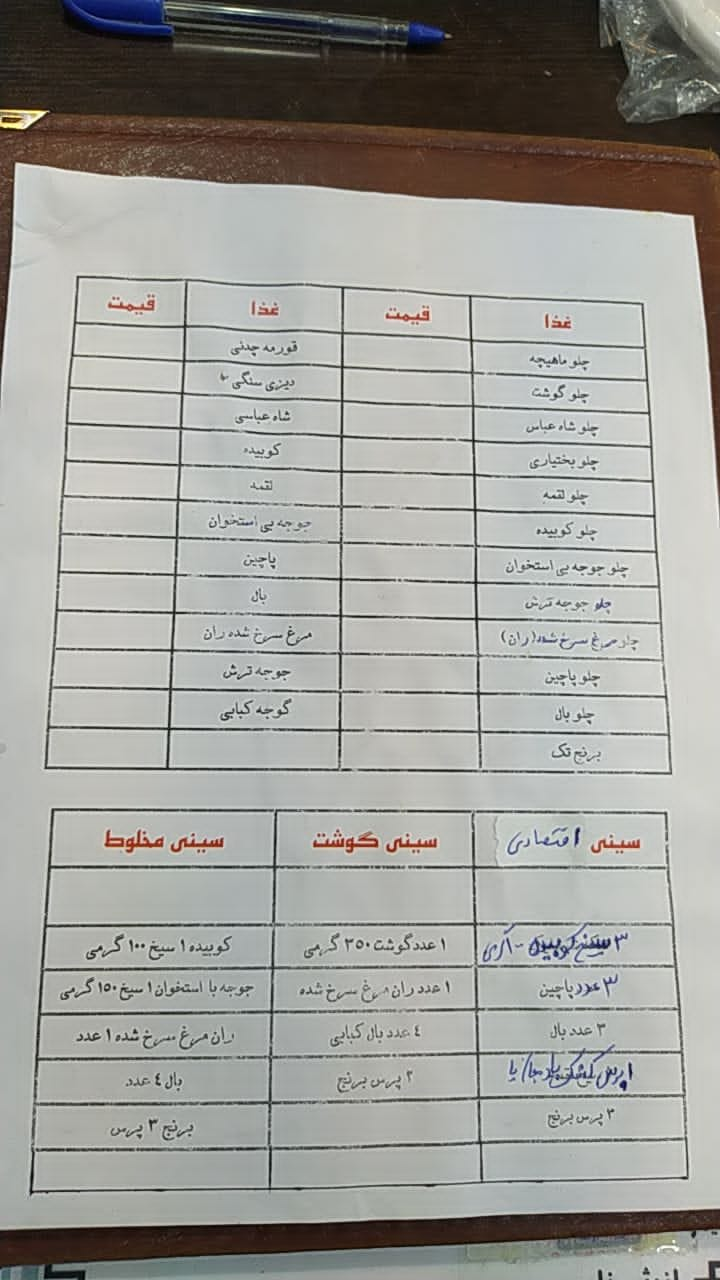 غذا قیمت غذا قیمت
چلو ماهیچه قورمه چدنی
چلو گوشت دیزی سنگی
چلو شاه عباس شاه عباسی
چلو بختیاری کوبیده
چلو لقمه لقمه
چلو کوبیده جوجه بی استخوان
چلو جوجه بی استخوان پاچین
چلو جوجه ترش بال
چلو مرغ سرخ شده (ران) مرغ سرخ شده ران
چلو پاچین جوجه ترش
چلو بال گوجه کبابی
برنج تک
سینی اقتصادی سینی گوشت سینی مخلوط
۳ سیخ کوبیده گرمی ۱ عدد گوشت ۲۵۰ گرمی کوبیده ۱ سیخ ۱۰۰ گرمی
۳ عدد پاچین ۱ عدد ران مرغ سرخ شده جوجه با استخوان ۱ سیخ ۱۵۰ گرمی
۳ عدد بال ٤ عدد بال کبابی ران مرغ سرخ شده ۱ عدد
۱ پرس کشک بادمجان یا ۲ پرس برنج بال ٤ عدد
۳ پرس برنج برنج ۳ پرس